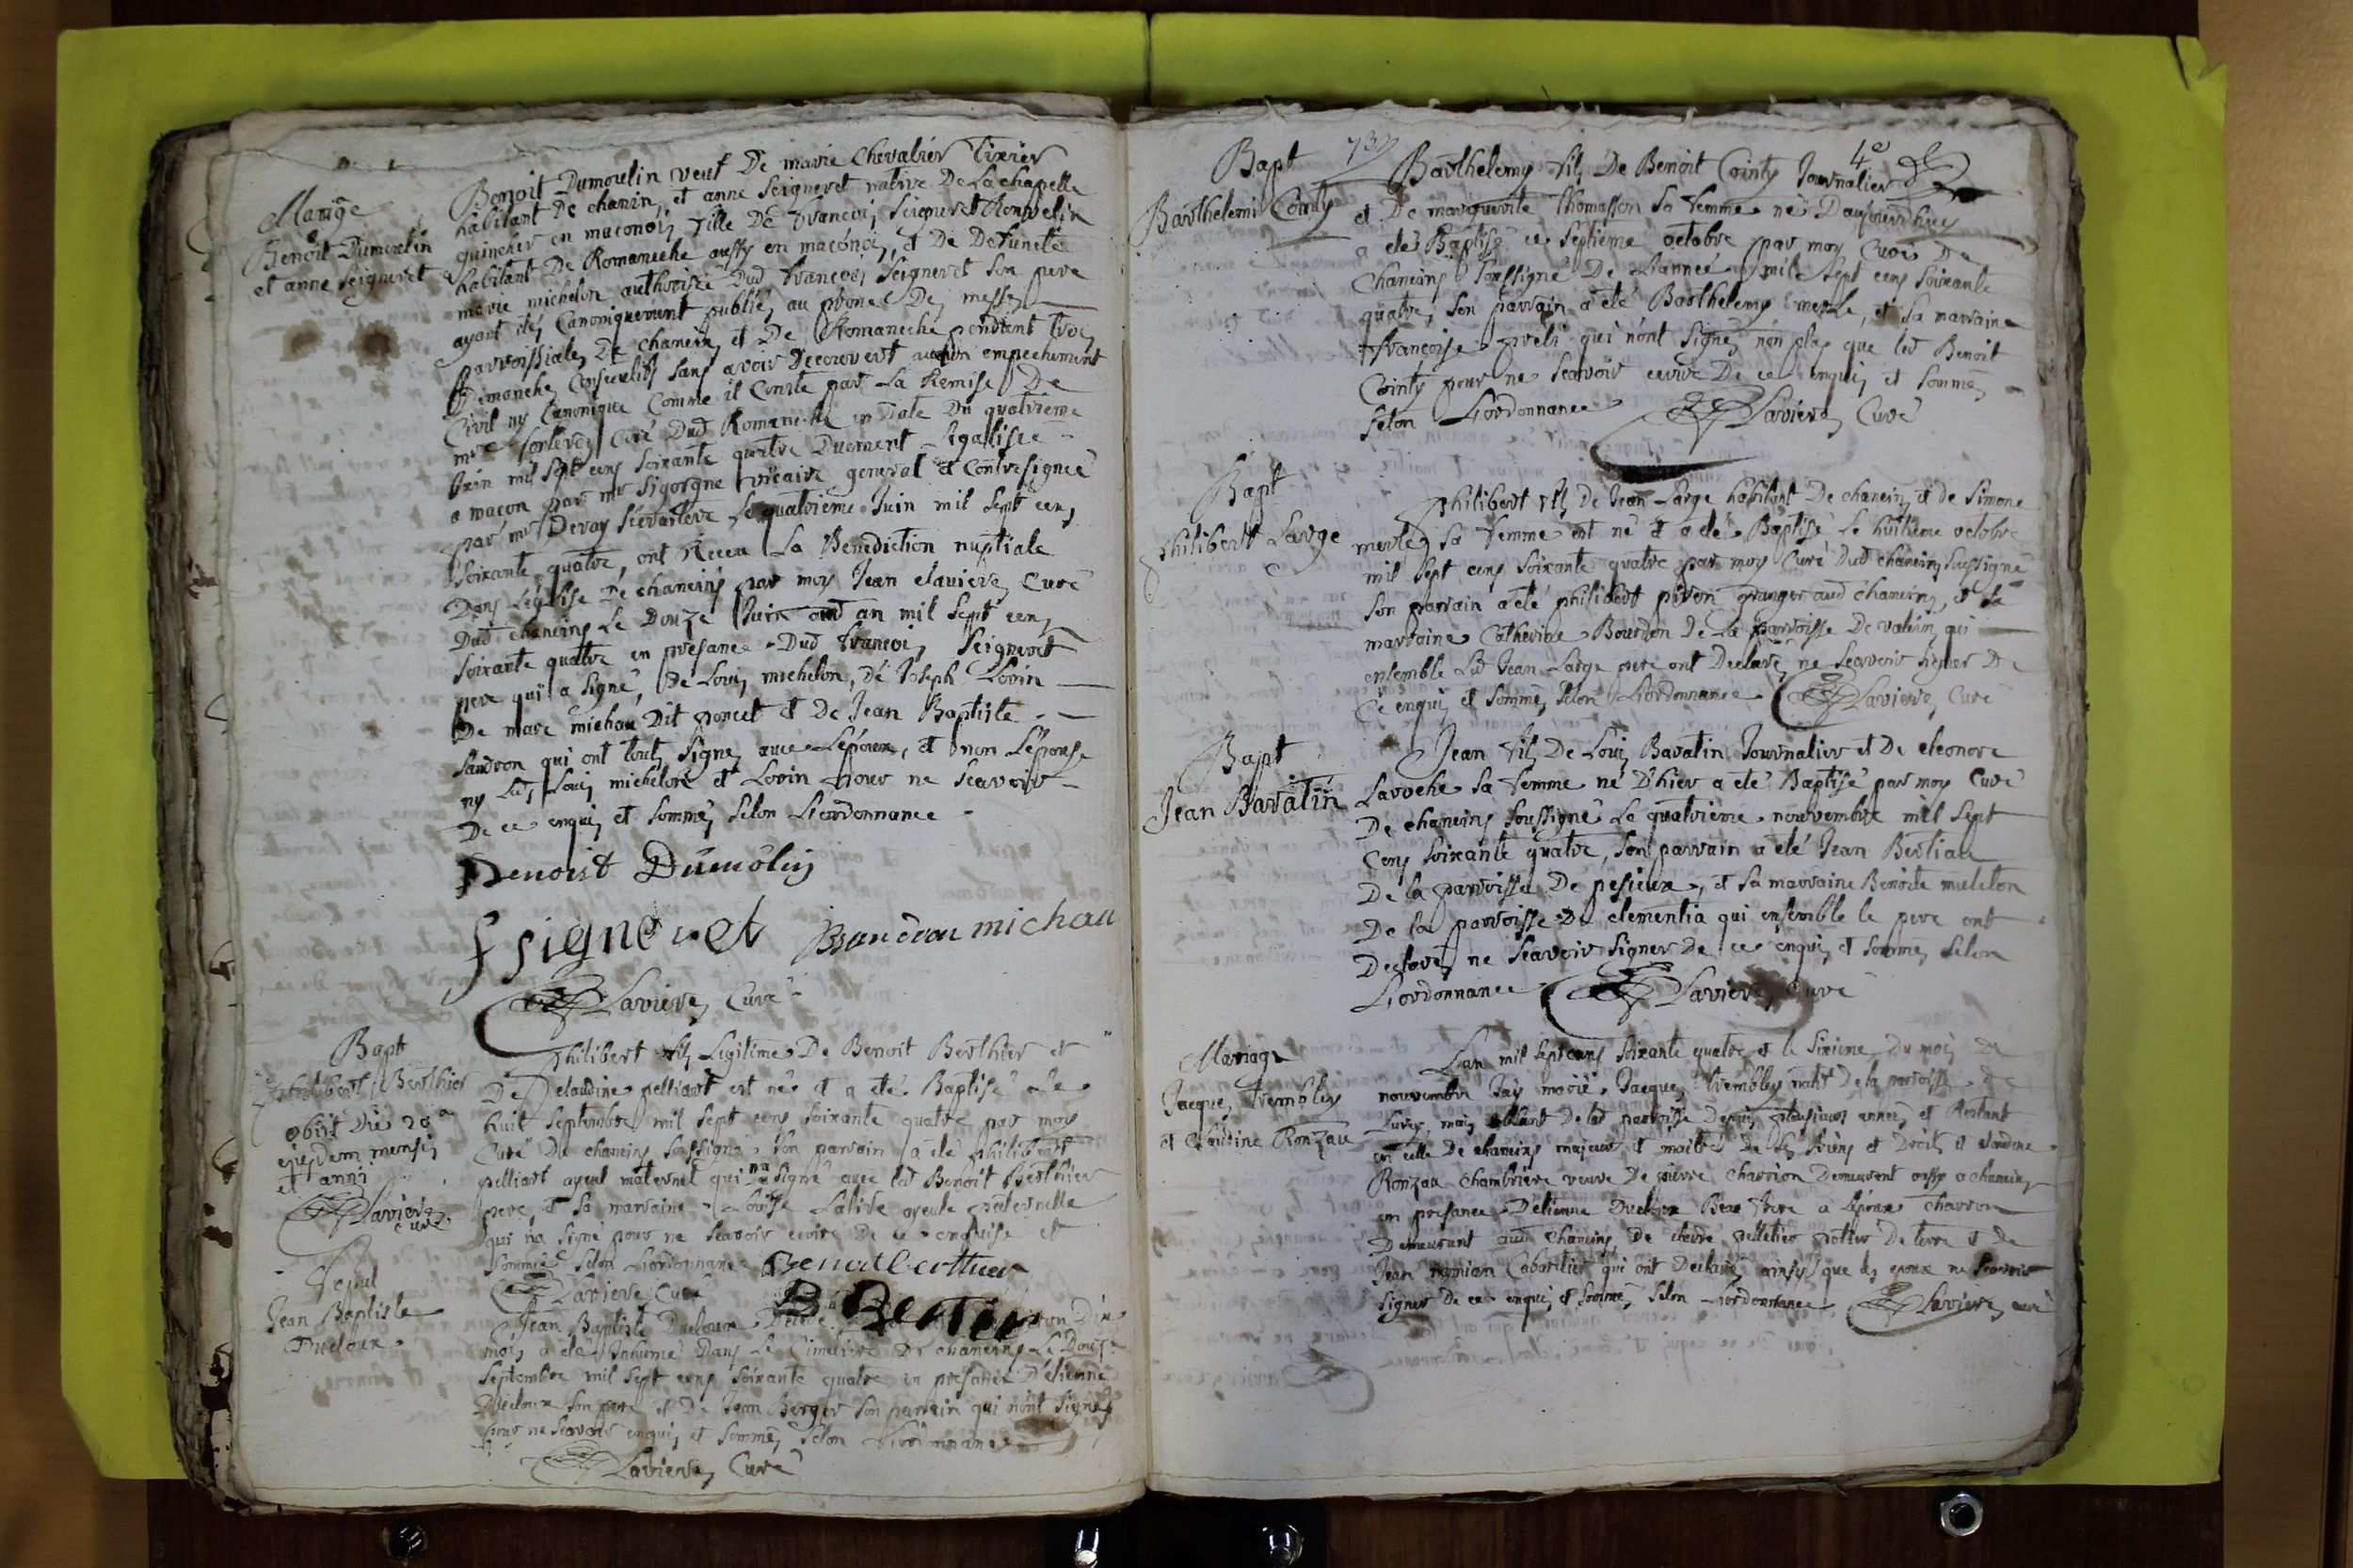 Mariage
Benoit Dumoulin
et anne Seigneret
Benoit Dumoulin veuf De marie Chevalier Tixier
habitant De chanein, et anne Seigneret native De La chapelle
quinchez en maconois fille De francois Seigneret
habitant De Romaneche aussy en maconois, et De Defuncte
marie michelon authorisée Dud francois Seigneret son pere
ayant étés Canoniquement publiés au prone Des messes
parroissiales De chaneins et De Romaneche pendant trois
Dimanches Consecutifs sans avoir Decouvert aucun empechement
Civil ny Canonique Comme il Conste par La Remise De
mre curé Dud Romaneche en Date Du quatrieme
Juin mil sept cens soixante quatre Duement Legalisée
a macon par mr Sigorgne vicaire general et Contresignée
par mr Devay Secretaire Le quatrieme Juin mil sept cens
soixante quatre, ont Receu La Benediction nuptiale
Dans L'église De chaneins par moy Jean claviere, Curé
Dud chaneins Le Douze Juin aud an mil sept cens
soixante quatre en presance Dud francois Seigneret
pere qui a signé, De Louis michelon, De Joseph Lorin
De marc michau Dit poncet et De Jean Baptiste
Saudron qui ont touts signés avec L'époux, et non L'épouse
ny Lds Louis michelon et Lorin pour ne Scavoir
De ce enquis et sommés selon L'ordonnance
Benoist Dumolin
f signeret michau
Laviere, Curé
Bapt
Philibert Berthier
obiit die 28a
ejusdem mensis
et anni
Laviere
curé
Philibert fils Legitime De Benoit Berthier et
De claudine pelliart est né et a eté Baptisé Le
huit Septembre mil sept cens soixante quatre par moy
Curé De chaneins soussigné, son parrain a été philibert
pelliart ayeul maternel qui na signé avec led Benoit Berthier
pere, et sa marraine Louise Lalive ayeule paternelle
qui na signé pour ne scavoir écrire De ce enquise et
sommée selon L'ordonnance Benoit berthier
Laviere Curé
B Bertier
Sepul
Jean Baptiste
Ducloux
Jean Baptiste Ducloux
mois a été inhumé Dans Le Cimetiere De chaneins Le Douze
Septembre mil sept cens soixante quatre en presance D'étienne
Ducloux son pere et De Jean Berger son parrain qui n'ont signés
pour ne scavoir enquis et sommés selon L'ordonnance
Laviere, Curé
73
4e
Bapt
Barthelemi Cointy
Barthelemy fils De Benoit Cointy Journalier
et De marguerite Thomasson sa femme né D'aujourdhuy
a eté Baptisé ce septieme octobre par moy Curé De
Chaneins soussigné De L'année mil sept cens soixante
quatre, son parrain a été Barthelemy merle, et sa marraine
francoise qui n'ont signés non plus que led Benoit
Cointy pour ne scavoir ecrire De ce enquis et sommés
selon L'ordonnance Laviere, Curé
Bapt
Philibert Large
Philibert fils de Jean Large habitant De chaneins et de Simone
merle sa femme est né et a eté Baptisé Le huitieme octobre
mil sept cens soixante quatre par moy Curé Dud chaneins sussigné
son parrain a été philibert piron granger aud chaneins, et sa
marraine Catherine Bourdon De La parroisse De valein qui
ensemble Led Jean Large pere ont Declaré ne scavoir signer De
Ce enquis et sommés selon L'ordonnance Laviere, Curé
Bapt
Jean Baratin
Jean fils De Louis Baratin Journalier et De eleonore
Laroche sa femme né D'hier a eté Baptisé par moy Curé
De chaneins soussigné Le quatrieme nouvembre mil sept
Cens soixante quatre, son parrain a été Jean Bertiau
De la parroisse De pesieux, et sa marraine Benoite
De la parroisse De clementia qui ensemble le pere ont
Declarés ne scavoir signer de ce enquis et sommés selon
L'ordonnance Laviere, Curé
Mariage
Jacques Trembley
et Claudine Ronzau
L'an mil sept cens soixante quatre et le sixieme Du mois De
nouvembre Jay marié Jacques Trembley natif De la parroisse de
Lurcy, mais absent De lad parroisse Depuis plusieurs années et Restant
en celle De chaneins majeur et maitre De ses biens et Droits et claudine
Ronzau chambriere veuve De pierre charrion Demeurant aussy a chaneins
en presance D'étienne Ducloux Beau frere a L'époux charron
Demeurant aud chaneins, De pelletier potier De terre et de
Jean Cabartier qui ont Declarés ainsy que Les epoux ne scavoir
signer De ce enquis et sommés selon L'ordonnance Laviere, curé